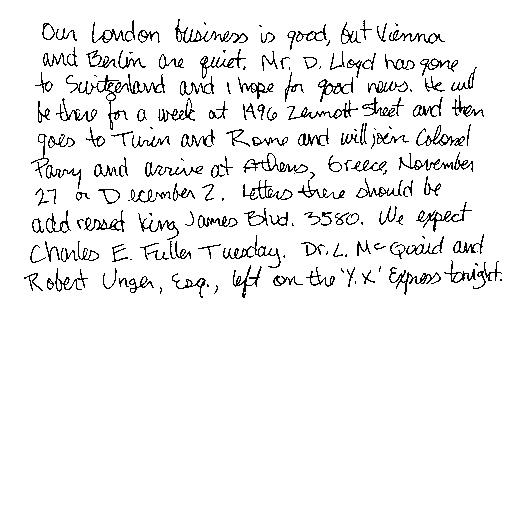 Our London business is good, but Vienna
and Berlin are quiet. Mr. D. Lloyd has gone
to Switzerland and I hope for good news. He will
be there for a week at 1496 Zermott Street and then
goes to Turin and Rome and will join Colonel
Parry and arrive at Athens, Greece, November
27 or December 2. Letters there should be
addressed King James Blvd. 3580. We expect
Charles E. Fuller Tuesday. Dr. L. McQuaid and
Robert Unger, Esq., left on the 'Y.X.' Express tonight.